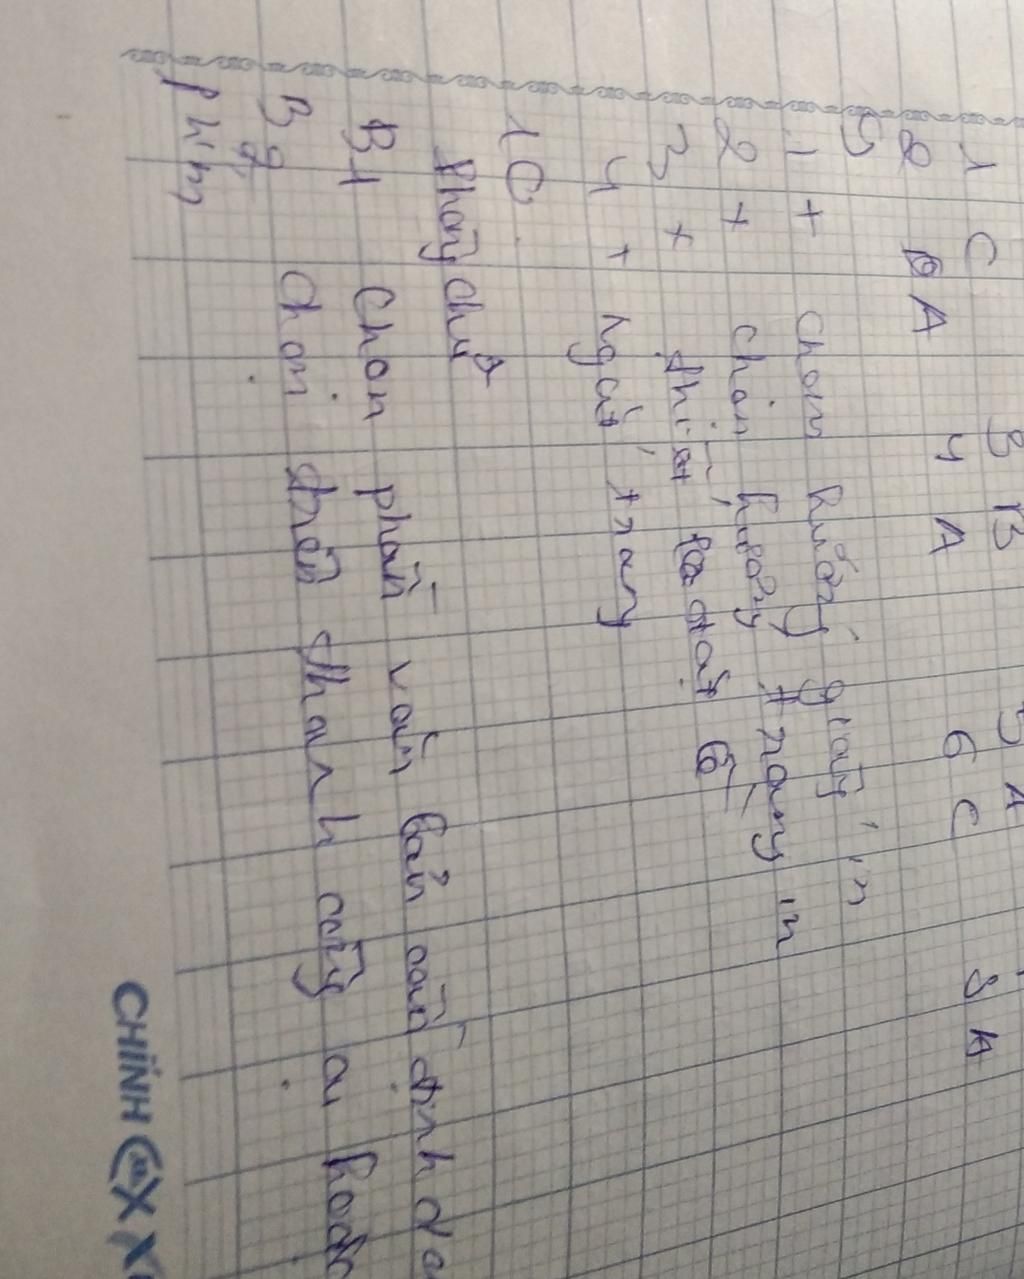 1 C 3 B 5 A
2 A 4 A 6 C 8 A
9
1 + chọn hướng giấy in
2 + chọn hướng trang in
3 + thiết đặt lề
4 + ngắt trang
10
phông chữ
B1 Chọn phần văn bản cần định
B2 chọn trên thanh công cụ hoặc
phím
CHÍNH